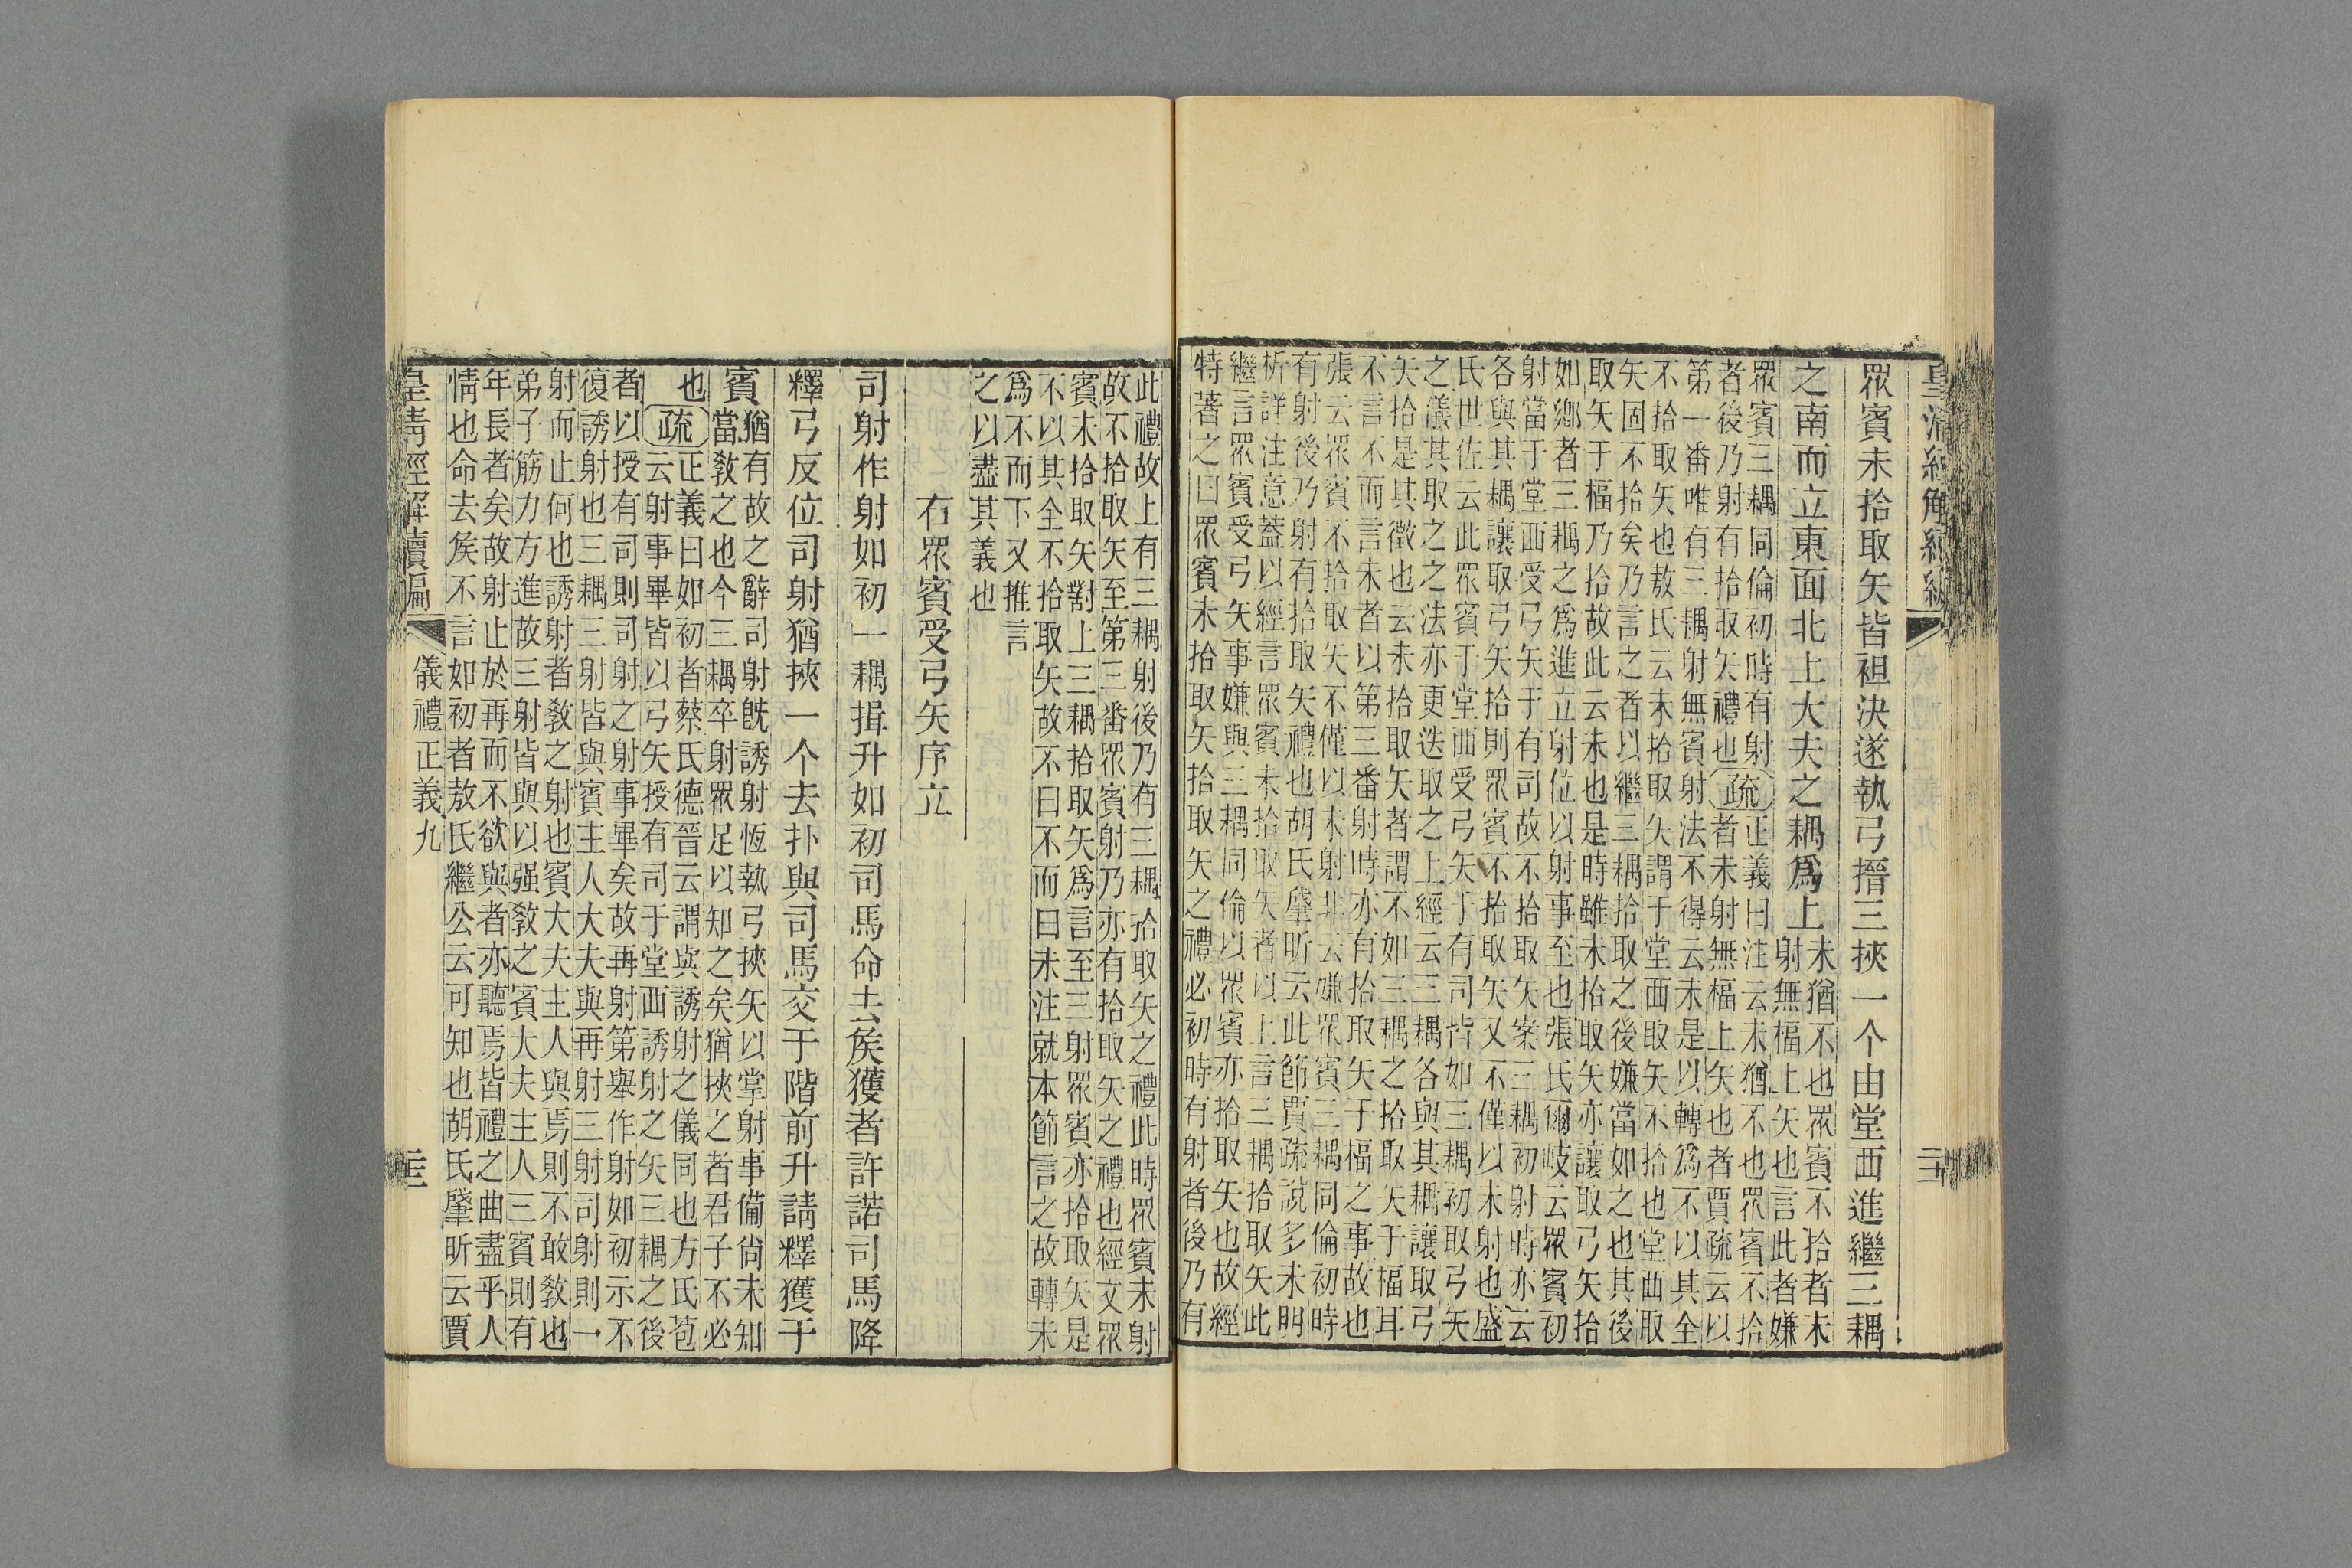 眾賓未拾取矢皆袒決遂執弓搢三挾一个由堂西進繼三耦
之南而立東面北上大夫之耦爲上
未猶不也眾賓不拾者未
射無楅上矢也言此者嫌
眾賓三耦同倫初時有射
者後乃射有拾取矢禮也
疏
正義曰注云未猶不也眾賓不拾
者未射無楅上矢也者賈疏云以
第一番唯有三耦射無賓射法不得云未是以轉爲不以其全
不拾取矢也敖氏云未拾取矢謂于堂西取矢不拾也堂西取
矢固不拾矣乃言之者以繼三耦拾取之後嫌當如之也其後
取矢于楅乃拾故此云未也是時雖未拾取矢亦讓取弓矢拾
如鄉者三耦之爲進立射位以射事至也張氏爾岐云眾賓初
射當于堂西受弓矢于有司故不拾取矢案三耦初射時亦云
各與其耦讓取弓矢拾則眾賓不拾取矢又不僅以未射也盛
氏世佐云此眾賓于堂西受弓矢于有司皆如三耦初取弓矢
之儀其取之之法亦更迭取之上經云三耦各與其耦讓取弓
矢拾是其徵也云未拾取矢者謂不如三耦之拾取矢于楅耳
不言不而言未者以第三番射時亦有拾取矢于楅之事故也
張云眾賓不拾取矢不僅以未射非云嫌眾賓三耦同倫初時
有射後乃射有拾取矢禮也胡氏肇昕云此節賈疏說多未明
析詳注意蓋以經言眾賓未拾取矢者以上言三耦拾取矢此
繼言眾賓受弓矢事嫌與三耦同倫以眾賓亦拾取矢也故經
特著之曰眾賓未拾取矢拾取矢之禮必初時有射者後乃有
此禮故上有三耦射後乃有三耦拾取矢之禮此時眾賓未射
故不拾取矢至第三番眾賓射乃亦有拾取矢之禮也經文眾
賓未拾取矢對上三耦拾取矢爲言至三射眾賓亦拾取矢是
不以其全不拾取矢故不曰不而曰未注就本節言之故轉未
爲不而下又推言
之以盡其義也
右眾賓受弓矢序立
司射作射如初一耦揖升如初司馬命去矦獲者許諾司馬降
釋弓反位司射猶挾一个去扑與司馬交于階前升請釋獲于
賓
猶有故之辭司射旣誘射恆執弓挾矢以掌射事備尙未知
當敎之也今三耦卒射眾足以知之矣猶挾之者君子不必
也
疏
正義曰如初者蔡氏德晉云謂與誘射之儀同也方氏苞
云射事畢皆以弓矢授有司于堂西誘射之矢三耦之後
者以授有司則司射之射事畢矣故再射第舉作射如初示不
復誘射也三耦三射皆與賓主人大夫與再射三射司射則一
射而止何也誘射者敎之射也賓大夫主人與焉則不敢敎也
弟子筋力方進故三射皆與以强敎之賓大夫主人三賓則有
年長者矣故射止於再而不欲與者亦聽焉皆禮之曲盡乎人
情也命去矦不言如初者敖氏繼公云可知也胡氏肇昕云賈
皇清經解續編
儀禮正義九